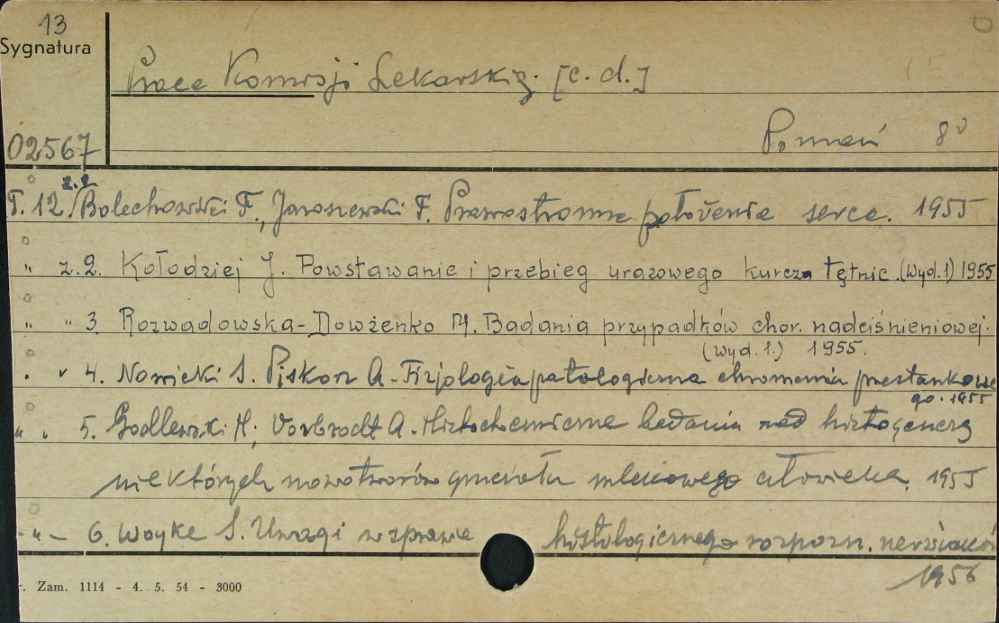 13
Sygnatura
Prace Komisji Lekarskiej. [c. d.]
02567
Poznań 8°
T. 12. z. 1 Bolechowski F., Jaroszewski F. Prawostronne położenie serca. 1955
" z. 2. Kołodziej J. Powstawanie i przebieg urazowego kurcza tętnic. (Wyd. 1) 1955
" " 3. Rozwadowska-Dowżenko M. Badania przypadków chor. nadciśnieniowej.
(wyd. 1.) 1955.
" " 4. Nowicki S. Piskorz A. - Fizjologia patologiczna chromania przestankowe
go. 1955
" " 5. Godlewski H., Vorbrodt A. Histochemiczne badania nad histogenezą
niektórych nowotworów gruczołu mlekowego człowieka. 1955
- " - 6. Woyke S. Uwagi w sprawie histologicznego rozpozn. nerwiaków
1956
Zam. 1114 - 4. 5. 54 - 3000